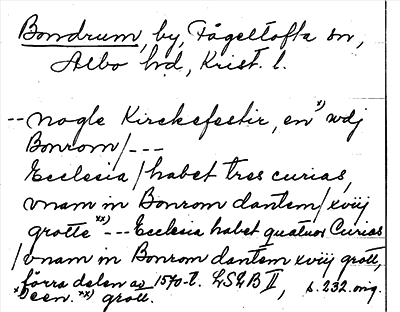 Bondrum, by, Fågeltofta sn,
Albo hd, Krist. l.
-- nogle Kirckefestir, en x) wdj
Bonrom/ ---
Ecclesia/ habet tres curias,
vnam in Bonrom dantem/ xviij
grotte xx) --- Ecclesia habet quatuor Curias
/vnam in Bonrom dantem xviij grott,
förra delen av 1570-t. LSEB II, s. 232. orig.
x) een. xx) grott.